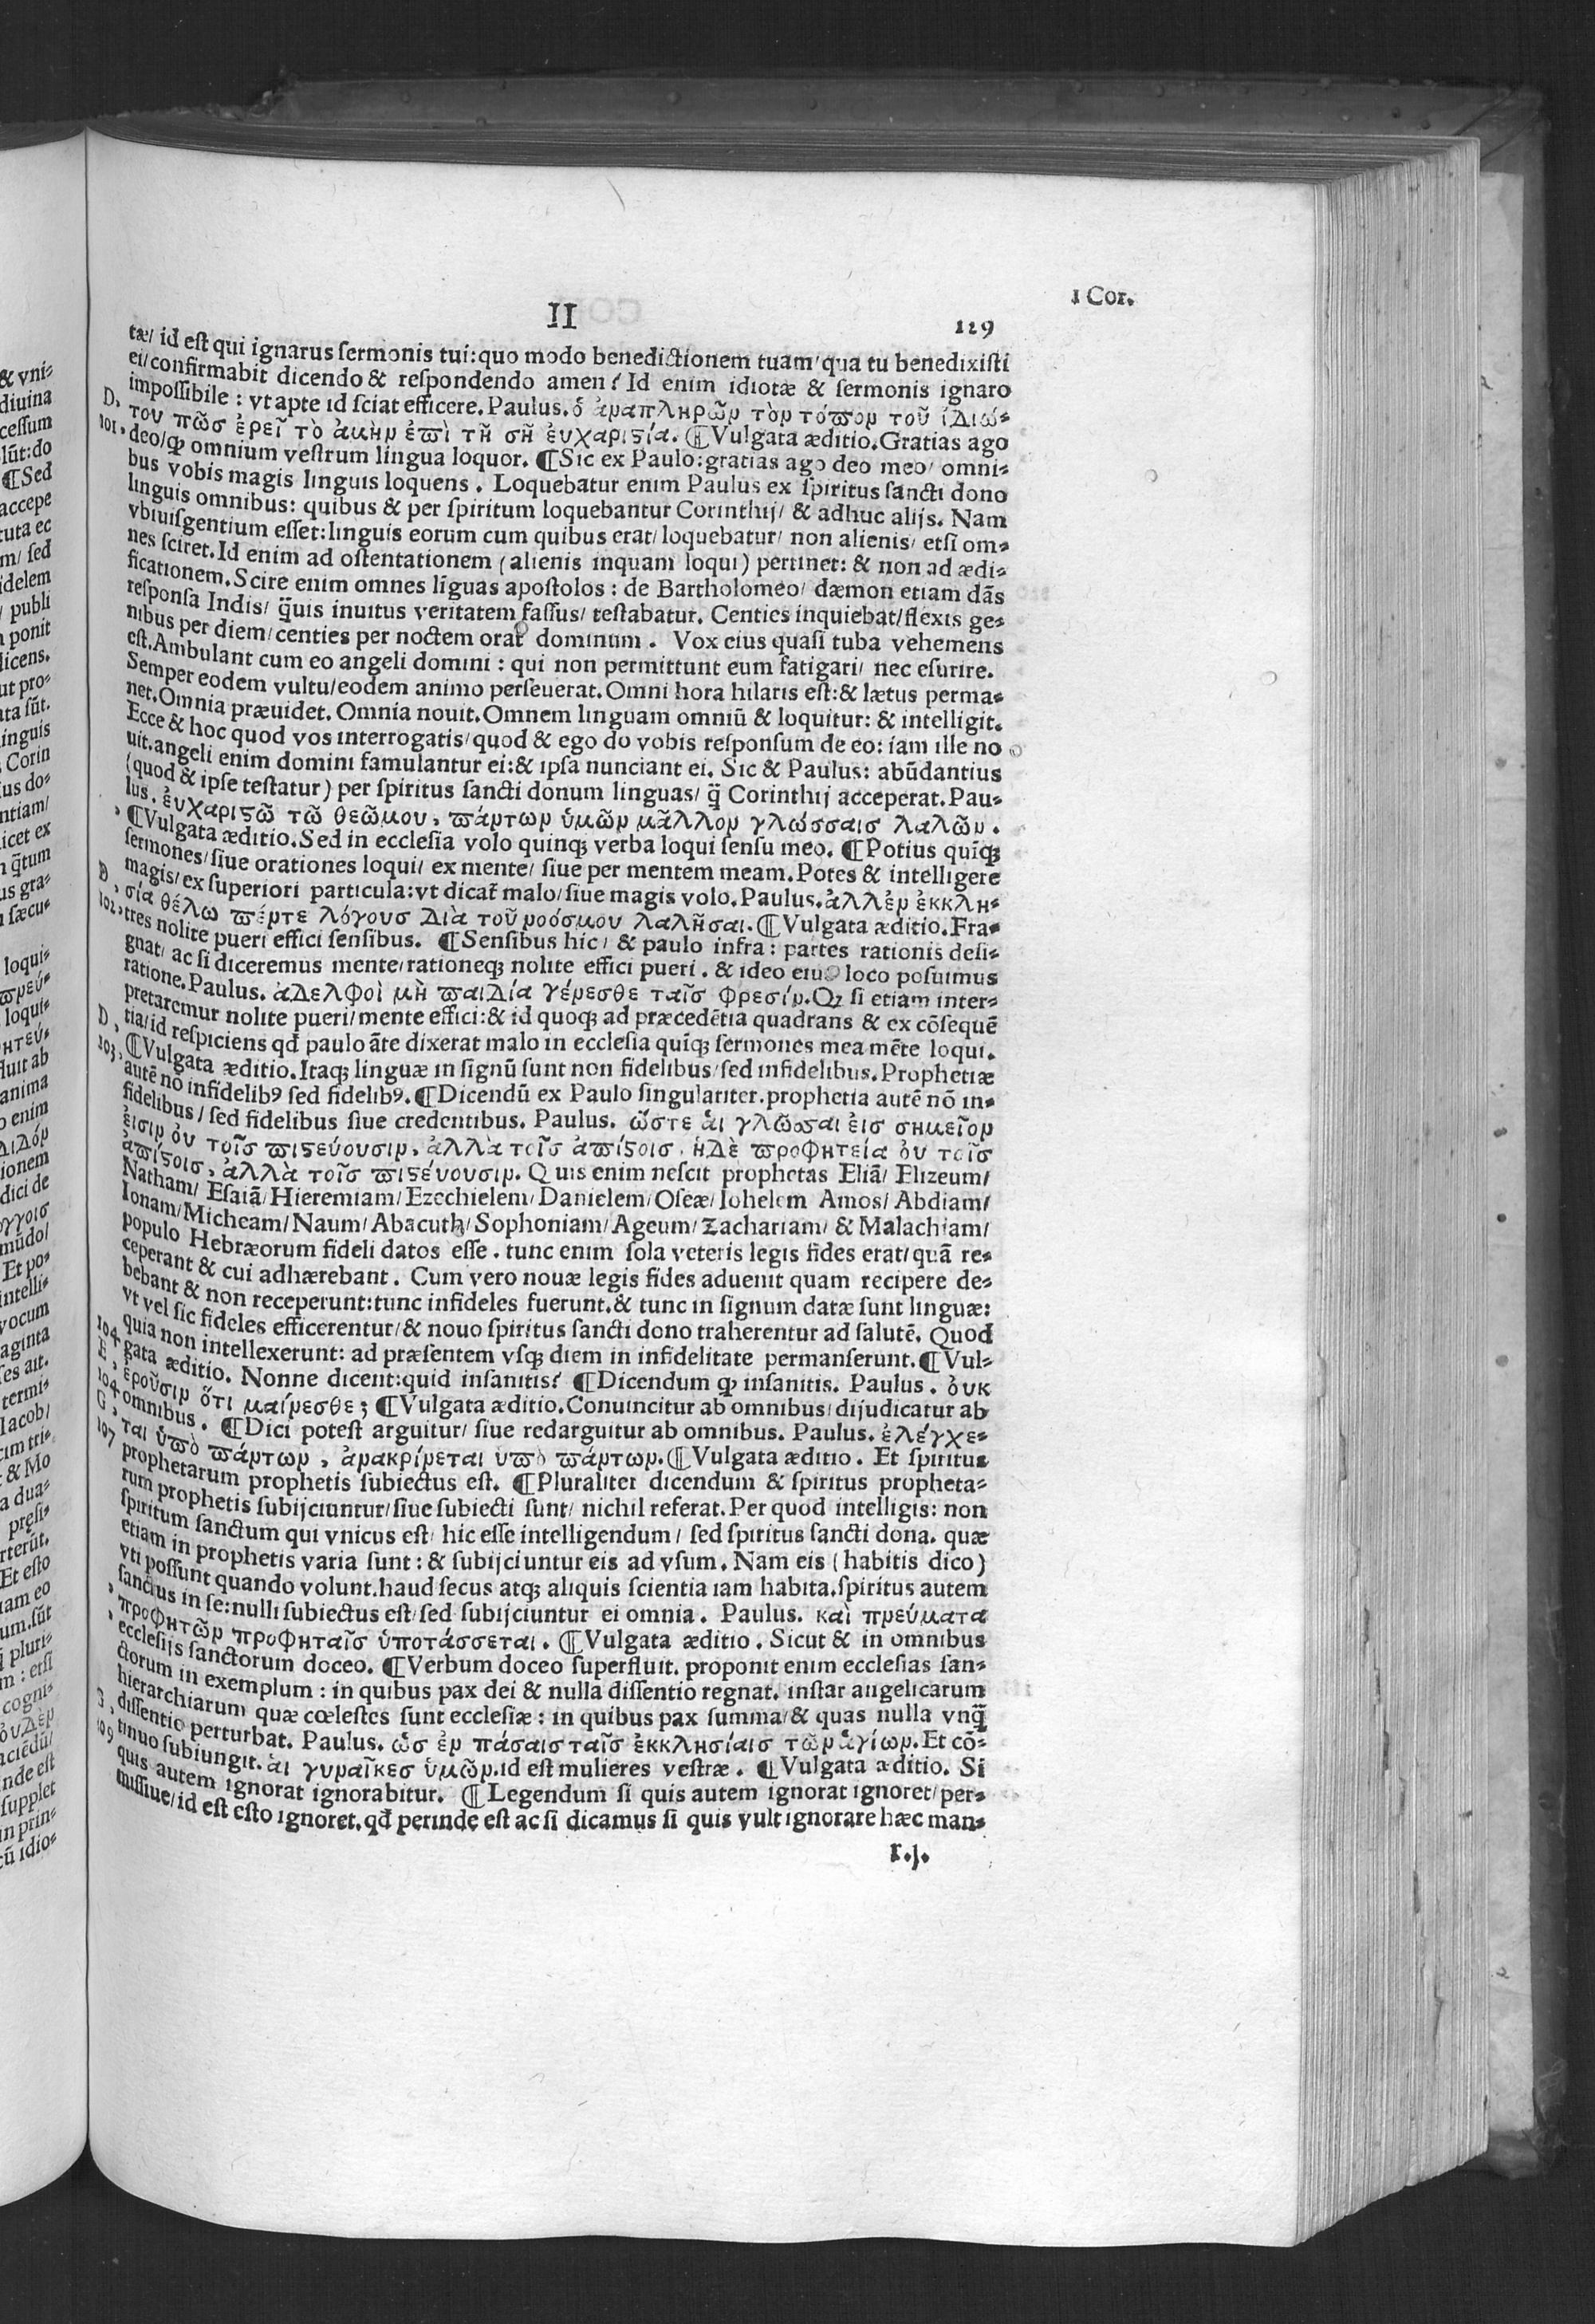 1 Cor.
II
129
tæ/ id est qui ignarus sermonis tui:quo modo benedictionem tuam/qua tu benedixisti
ei/confirmabit dicendo & respondendo amen? Id enim idiotæ & sermonis ignaro
impossibile : vt apte id sciat efficere. Paulus. ὁ ἀναπληρῶν τὸν τόπον τοῦ ἰδιώ-
D, του πῶσ ἐρεῖ τὸ ἀμὴν ἐπὶ τῆ σῆ ἐυχαριϛία. ¶Vulgata æditio.Gratias ago
101, deo/ꝙ omnium vestrum lingua loquor. ¶Sic ex Paulo:gratias ago deo meo/ omni-
bus vobis magis linguis loquens . Loquebatur enim Paulus ex spiritus sancti dono
linguis omnibus: quibus & per spiritum loquebantur Corinthij/ & adhuc alijs. Nam
vbiuisgentium esset:linguis eorum cum quibus erat/ loquebatur/ non alienis/ etsi om-
nes sciret. Id enim ad ostentationem (alienis inquam loqui) pertinet: & non ad ædi-
ficationem. Scire enim omnes līguas apostolos : de Bartholomeo/ dæmon etiam dās
responsa Indis/ q̄uis inuitus veritatem fassus/ testabatur. Centies inquiebat/flexis ge-
nibus per diem/centies per noctem orat dominum . Vox eius quasi tuba vehemens
est.Ambulant cum eo angeli domini : qui non permittunt eum fatigari/ nec esurire.
Semper eodem vultu/eodem animo perseuerat. Omni hora hilaris est:& lætus perma-
net.Omnia præuidet. Omnia nouit.Omnem linguam omniū & loquitur: & intelligit.
Ecce & hoc quod vos interrogatis/quod & ego do vobis responsum de eo: iam ille no
uit.angeli enim domini famulantur ei:& ipsa nunciant ei. Sic & Paulus: abūdantius
(quod & ipse testatur) per spiritus sancti donum linguas/ q̄ Corinthij acceperat. Pau-
lus. ἐυχαριϛῶ τῶ θεῶμου, πάντων ὑμῶν μᾶλλον γλώσσαισ λαλῶν.
, ¶Vulgata æditio.Sed in ecclesia volo quinqꝫ verba loqui sensu meo. ¶Potius quīqꝫ
sermones/siue orationes loqui/ ex mente/ siue per mentem meam. Potes & intelligere
magis/ex superiori particula:vt dicat malo/siue magis volo. Paulus. ἀλλἐν ἐκκλη-
D, σία θέλω πέντε λόγουσ διὰ τοῦ νοόσμου λαλῆσαι. ¶Vulgata æditio. Fra-
102, tres nolite pueri effici sensibus. ¶Sensibus hic/ & paulo infra: partes rationis desi-
gnat/ ac si diceremus mente/rationeqꝫ nolite effici pueri . & ideo eius loco posuimus
ratione.Paulus. ἀδελφοὶ μὴ παιδία γένεσθε ταῖσ φρεσίν. Qꝫ si etiam inter-
pretaremur nolite pueri/mente effici:& id quoqꝫ ad præcedētia quadrans & ex cōsequē
D, tia/id respiciens qđ paulo āte dixerat malo in ecclesia quīqꝫ sermones mea mēte loqui.
103, ¶Vulgata æditio. Itaqꝫ linguæ in signū sunt non fidelibus/sed infidelibus. Prophetiæ
autē no infidelibꝰ sed fidelibꝰ. ¶Dicendū ex Paulo singulariter.prophetia autē nō in-
fidelibus/ sed fidelibus siue credentibus. Paulus. ὥστε ἁι γλῶσσαι ἐισ σημεῖον
ἐισιν ὀυ τοῖσ πιϛεύουσιν, ἀλλὰ τοῖσ ἀπίϛοισ, ἡδὲ προφητεία ὀυ τοῖσ
ἀπίϛοισ, ἀλλὰ τοῖσ πιϛέυουσιν. Quis enim nescit prophetas Eliā/ Elizeum/
Natham/ Esaiā/Hieremiam/ Ezechielem/ Danielem/ Oseæ/ Iohelem Amos/ Abdiam/
Ionam/Micheam/ Naum/ Abacuth/ Sophoniam/ Ageum/ Zachariam/ & Malachiam/
populo Hebræorum fideli datos esse . tunc enim sola veteris legis fides erat/ quā re-
ceperant & cui adhærebant . Cum vero nouæ legis fides aduenit quam recipere de-
bebant & non receperunt:tunc infideles fuerunt.& tunc in signum datæ sunt linguæ:
vt vel sic fideles efficerentur/& nouo spiritus sancti dono traherentur ad salutē. Quod
quia non intellexerunt: ad præsentem vsqꝫ diem in infidelitate permanserunt. ¶Vul-
104, gata æditio. Nonne dicent:quid insanitis? ¶Dicendum ꝙ insanitis. Paulus . ὀυκ
E, ἐροῦσιν ὅτι μαίνεσθε; ¶Vulgata æditio.Conuincitur ab omnibus/dijudicatur ab
104 omnibus . ¶Dici potest arguitur/ siue redarguitur ab omnibus. Paulus. ἐλέγχε-
G, ται ὑπὸ πάντων , ἀνακρίνεται ὑπὸ πάντων. ¶Vulgata æditio . Et spiritus
107 prophetarum prophetis subiectus est. ¶Pluraliter dicendum & spiritus propheta-
rum prophetis subijciuntur/siue subiecti sunt/ nichil referat. Per quod intelligis: non
spiritum sanctum qui vnicus est/ hic esse intelligendum/ sed spiritus sancti dona. quæ
etiam in prophetis varia sunt : & subijciuntur eis ad vsum. Nam eis (habitis dico)
vti possunt quando volunt.haud secus atqꝫ aliquis scientia iam habita.spiritus autem
sanctus in se:nulli subiectus est/ sed subijciuntur ei omnia. Paulus. καὶ πνεύματα
, προφητῶν προφηταῖσ ὑποτάσσεται. ¶Vulgata æditio . Sicut & in omnibus
, ecclesijs sanctorum doceo. ¶Verbum doceo superfluit. proponit enim ecclesias san-
ctorum in exemplum : in quibus pax dei & nulla dissentio regnat. instar angelicarum
hierarchiarum quæ cœlestes sunt ecclesiæ : in quibus pax summa/& quas nulla vnq̄
G, dissentio perturbat. Paulus. ὡσ ἐν πάσαισ ταῖσ ἐκκλησίαισ τῶν ἁγίων. Et cō-
109 tinuo subiungit. ἁι γυναῖκεσ ὑμῶν.id est mulieres vestræ . ¶Vulgata æditio. Si
quis autem ignorat ignorabitur. ¶Legendum si quis autem ignorat ignoret/ per-
missiue/id est esto ignoret. qđ perinde est ac si dicamus si quis vult ignorare hæc man-
r.j.